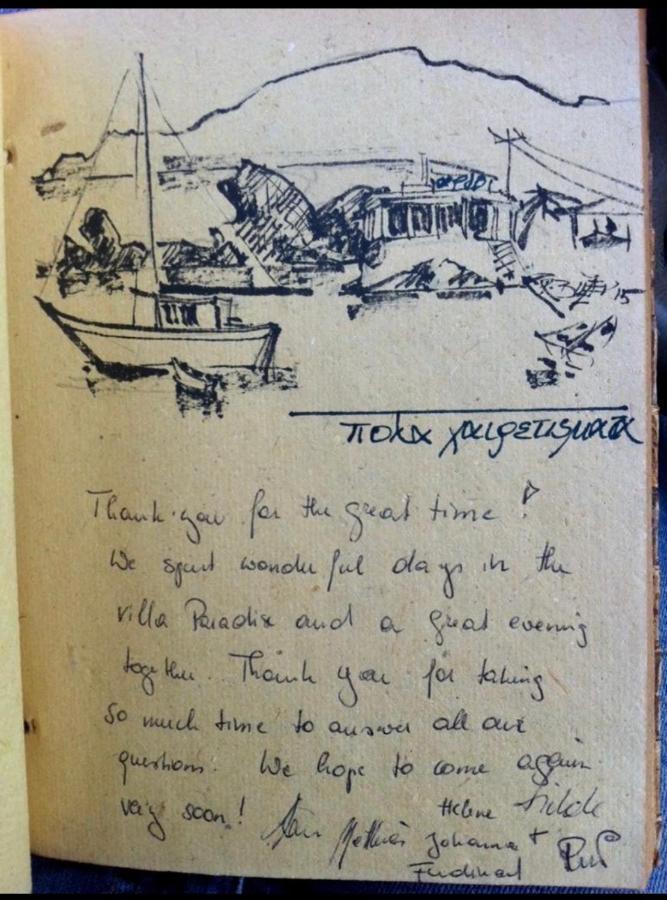 '15
ποља χαιρετισματα
Thank you for the great time!
We spent wonderful days in the
villa Paradise and a great evening
together. Thank you for taking
so much time to answer all our
questions. We hope to come again
very soon!
Helene
Mathias Johanna +
Ferdinand